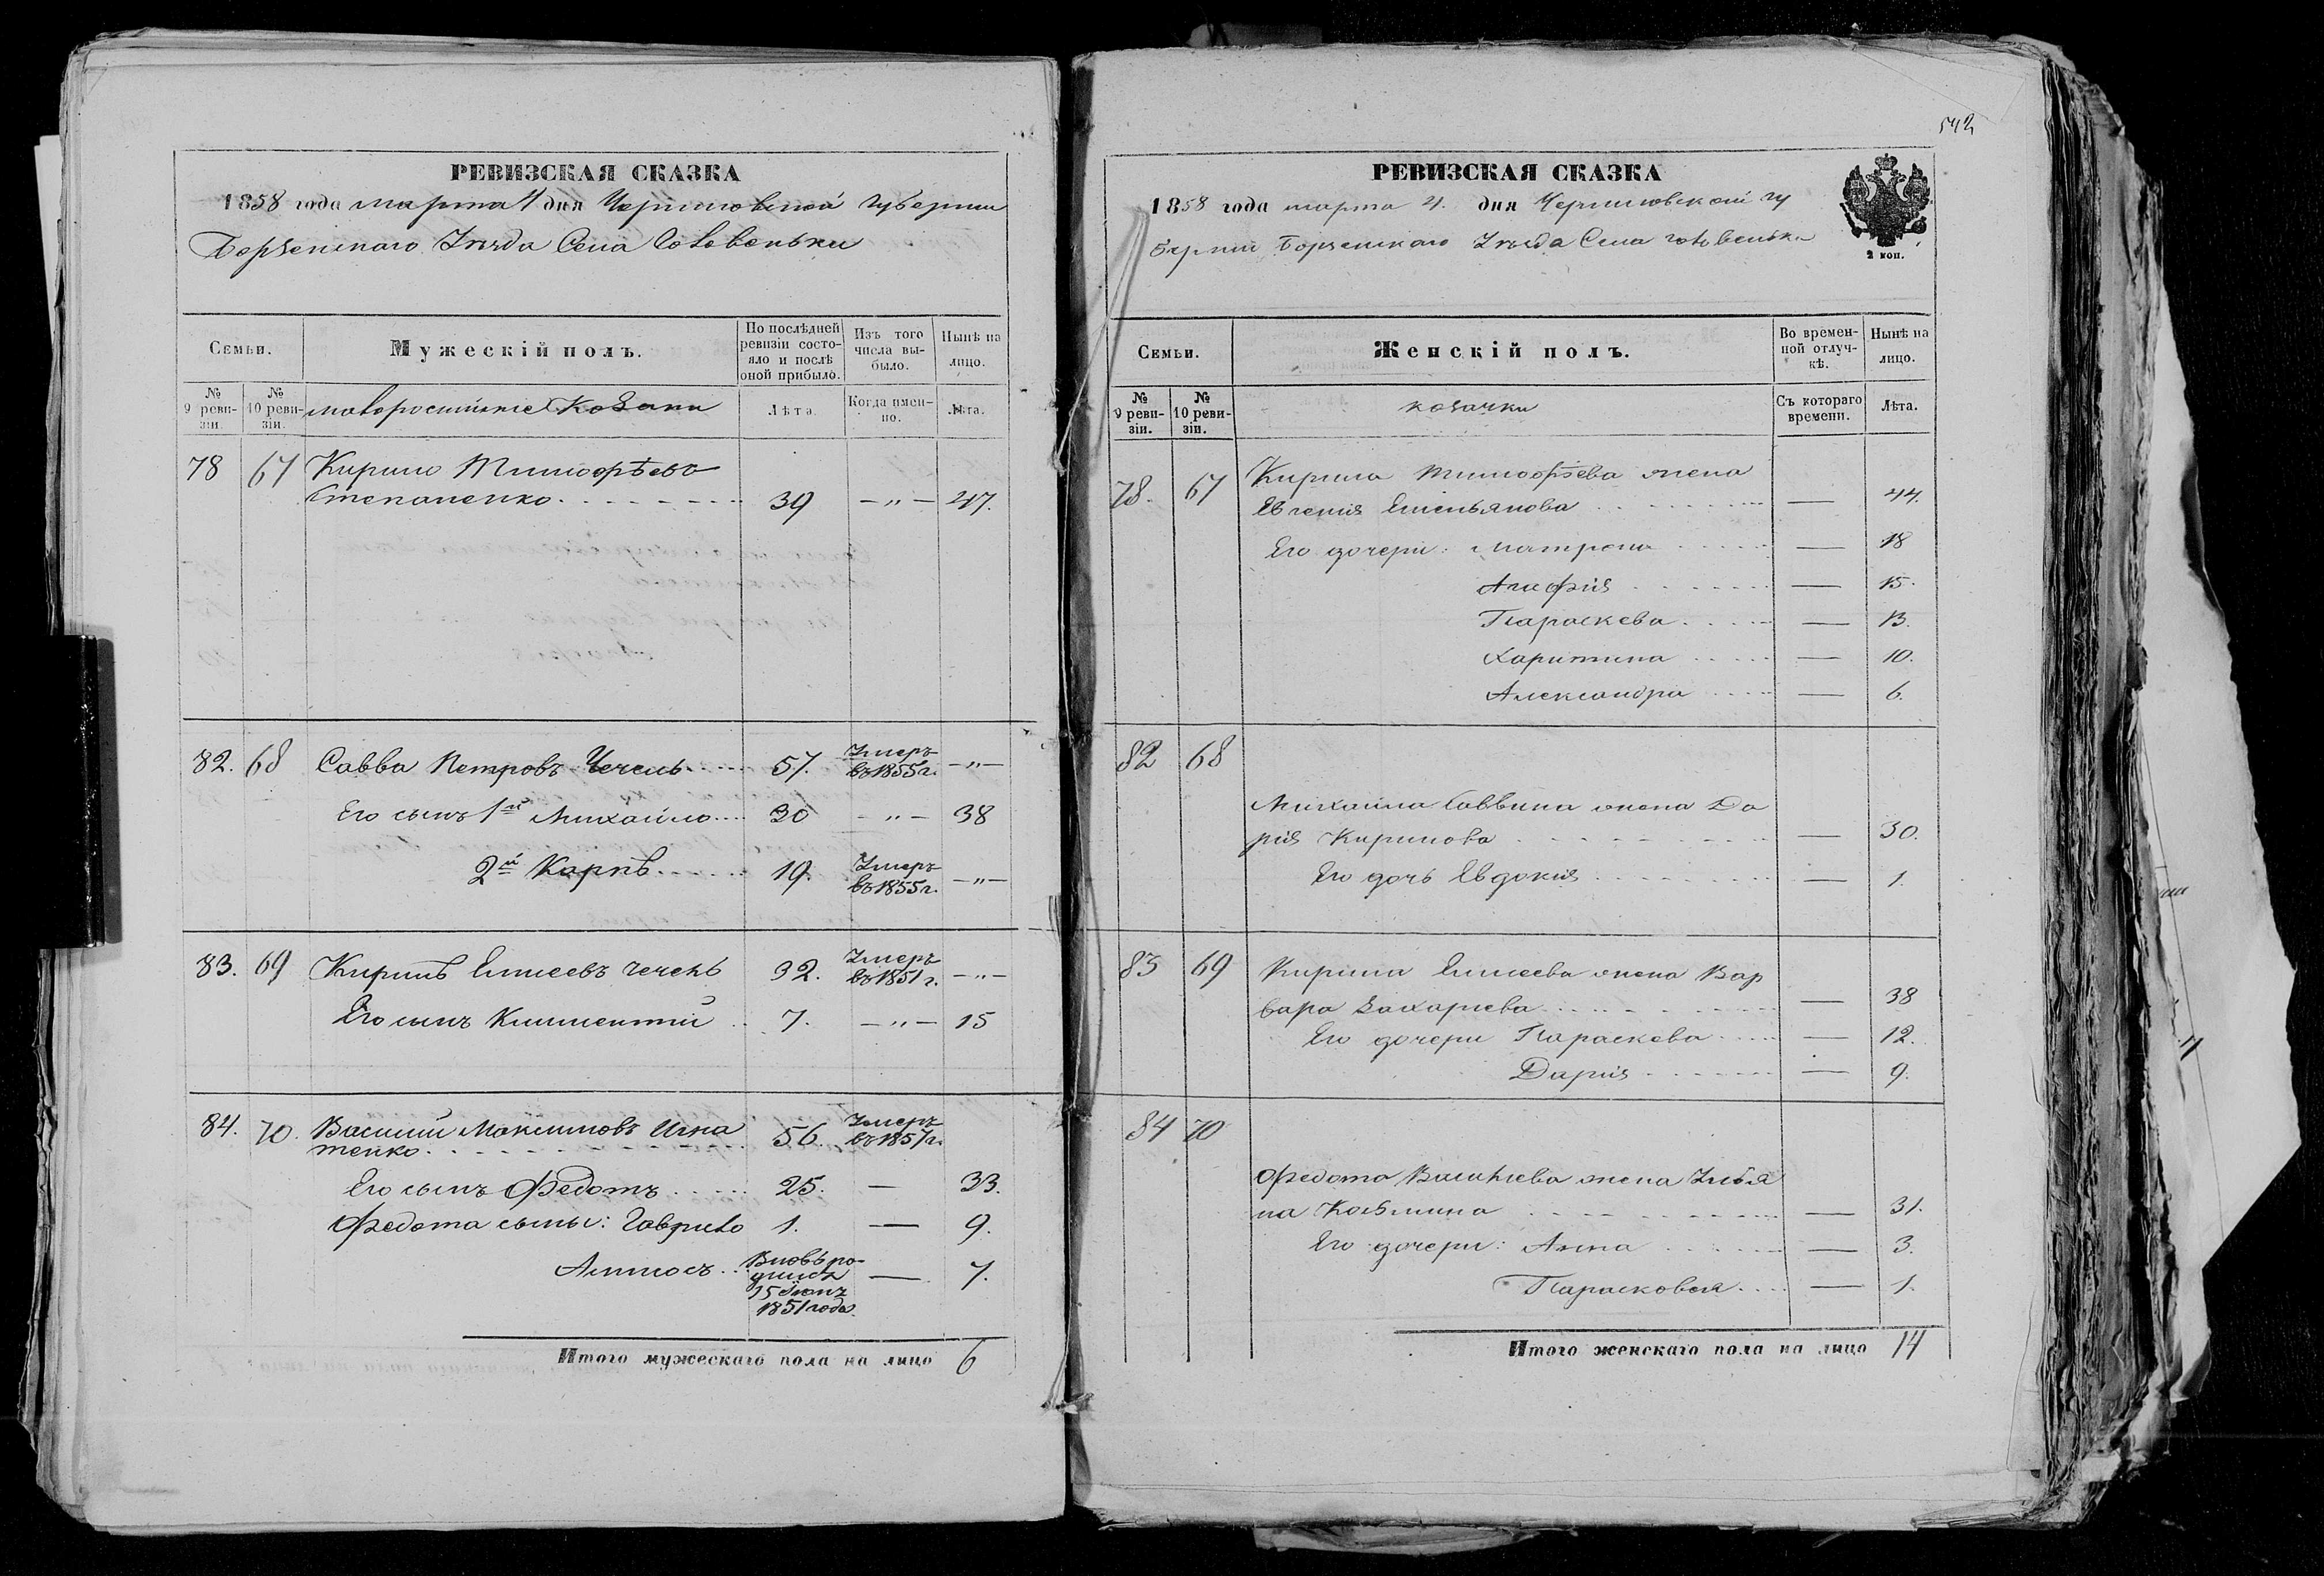 РЕВИЗСКАЯ СКАЗКА
1858 года марта 4 дня Черниговской губернии
Борзенскаго Уѣзда Села Головеньки
Семьи.
Мужескій полъ.
По послѣдней ревизіи состояло и послѣ оной прибыло.
Изъ того числа выбыло.
Нынѣ на лицо.
№ 9 ревизіи.
№ 10 ревизіи.
малороссійскіе Козаки
Лѣта.
Когда именно.
Лѣта.
78 67 Кирило Тимофѣевъ
Степаненко 39 — „ — 47.
82. 68 Савва Петровъ Чечель 57. Умеръ въ 1855 г. — „ —
Его сынъ 1й Михайло 30 — „ — 38
2й Карпъ 19. Умеръ въ 1855 г. — „ —
83. 69 Кирилъ Елисеевъ Чечель 32. Умеръ въ 1851 г. — „ —
Его сынъ Климентій 7. — „ — 15
84. 70. Василий Максимовъ Игна
тенко 56. Умеръ въ 1857 г.
Его сынъ Федотъ 25. — 33.
Федота сыны: Гаврило 1. — 9.
Амносъ Вновь родился 15 Iюнь 1851 года — 7.
Итого мужескаго пола на лицо 6
542
РЕВИЗСКАЯ СКАЗКА
1858 года марта 4. дня Черниговской гу
берніи, Борзенскаго Уѣзда Села Головеньки
2 коп.
Семьи.
Женскій полъ.
Во временной отлучкѣ.
Нынѣ на лицо.
№ 9 ревизіи.
№ 10 ревизіи.
козачки
Съ котораго времени.
Лѣта.
78. 67 Кирила Тимофѣева жена
Евгения Емельянова — 44.
Его дочери: Матрона — 18
Агафия — 15.
Параскева — 13.
Харитина — 10.
Александра — 6.
82 68
Михаила Саввина жена Да
рия Кирилова — 30.
Его дочь Евдокия — 1.
83 69 Кирила Елисеева жена Вар
вара Захариева — 38
Его дочери Параскева — 12.
Дария — 9.
84 70
Федота Васильева жена Улья
на Козьмина — 31.
Его дочери: Анна — 3.
Парасковея — 1.
Итого женскаго пола на лицо 14